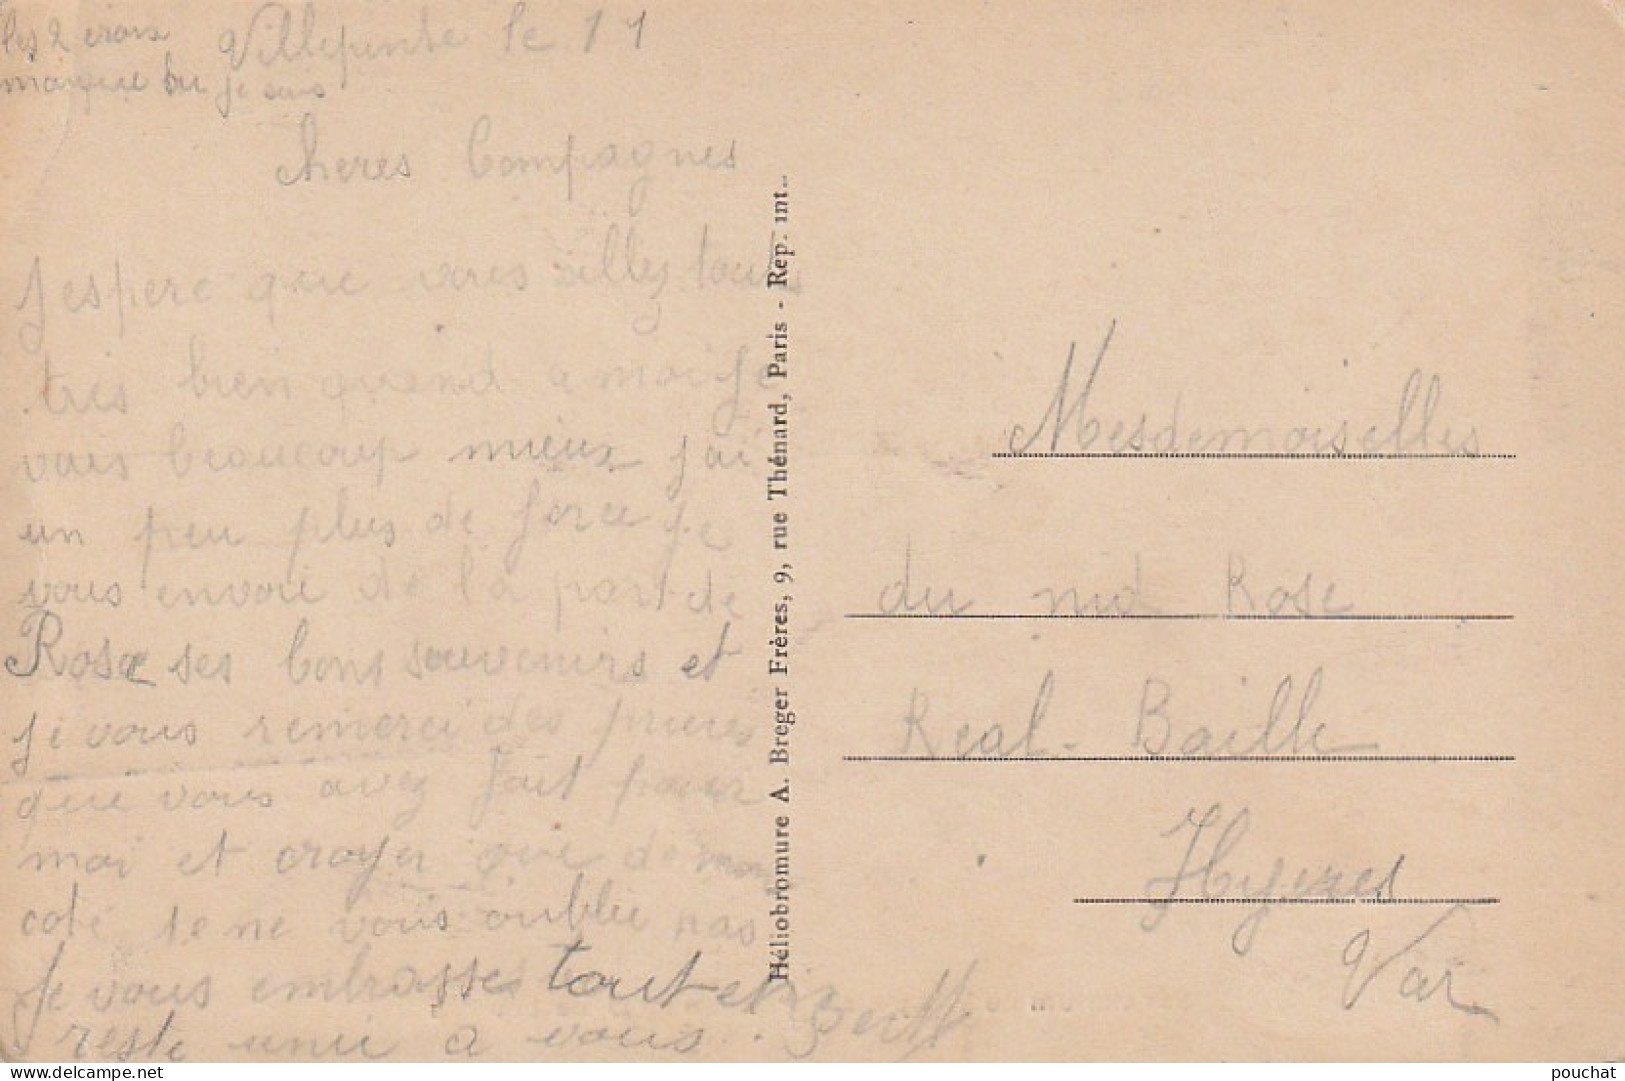 les 2 croix Villepinte le 11
marque ou je suis
cheres Compagnes
J espere que vous allez toutes
très bien quend a moi je
vais beaucoup mieux j ai
un peu plus de force je
vous envoi de la part de
Rose ses bons souvenirs et
je vous remerci des prieres
que vous avez fait pour
moi et croyer que de mon
coté je ne vous oublie pas
Je vous embrasses toutes et
reste unie a vous.
Héliobromure A. Breger Frères, 9, rue Thénard, Paris - Rep. int.
Mesdemoiselles
du nid Rose
Real-Baille
Hyeres
Var
pouchat